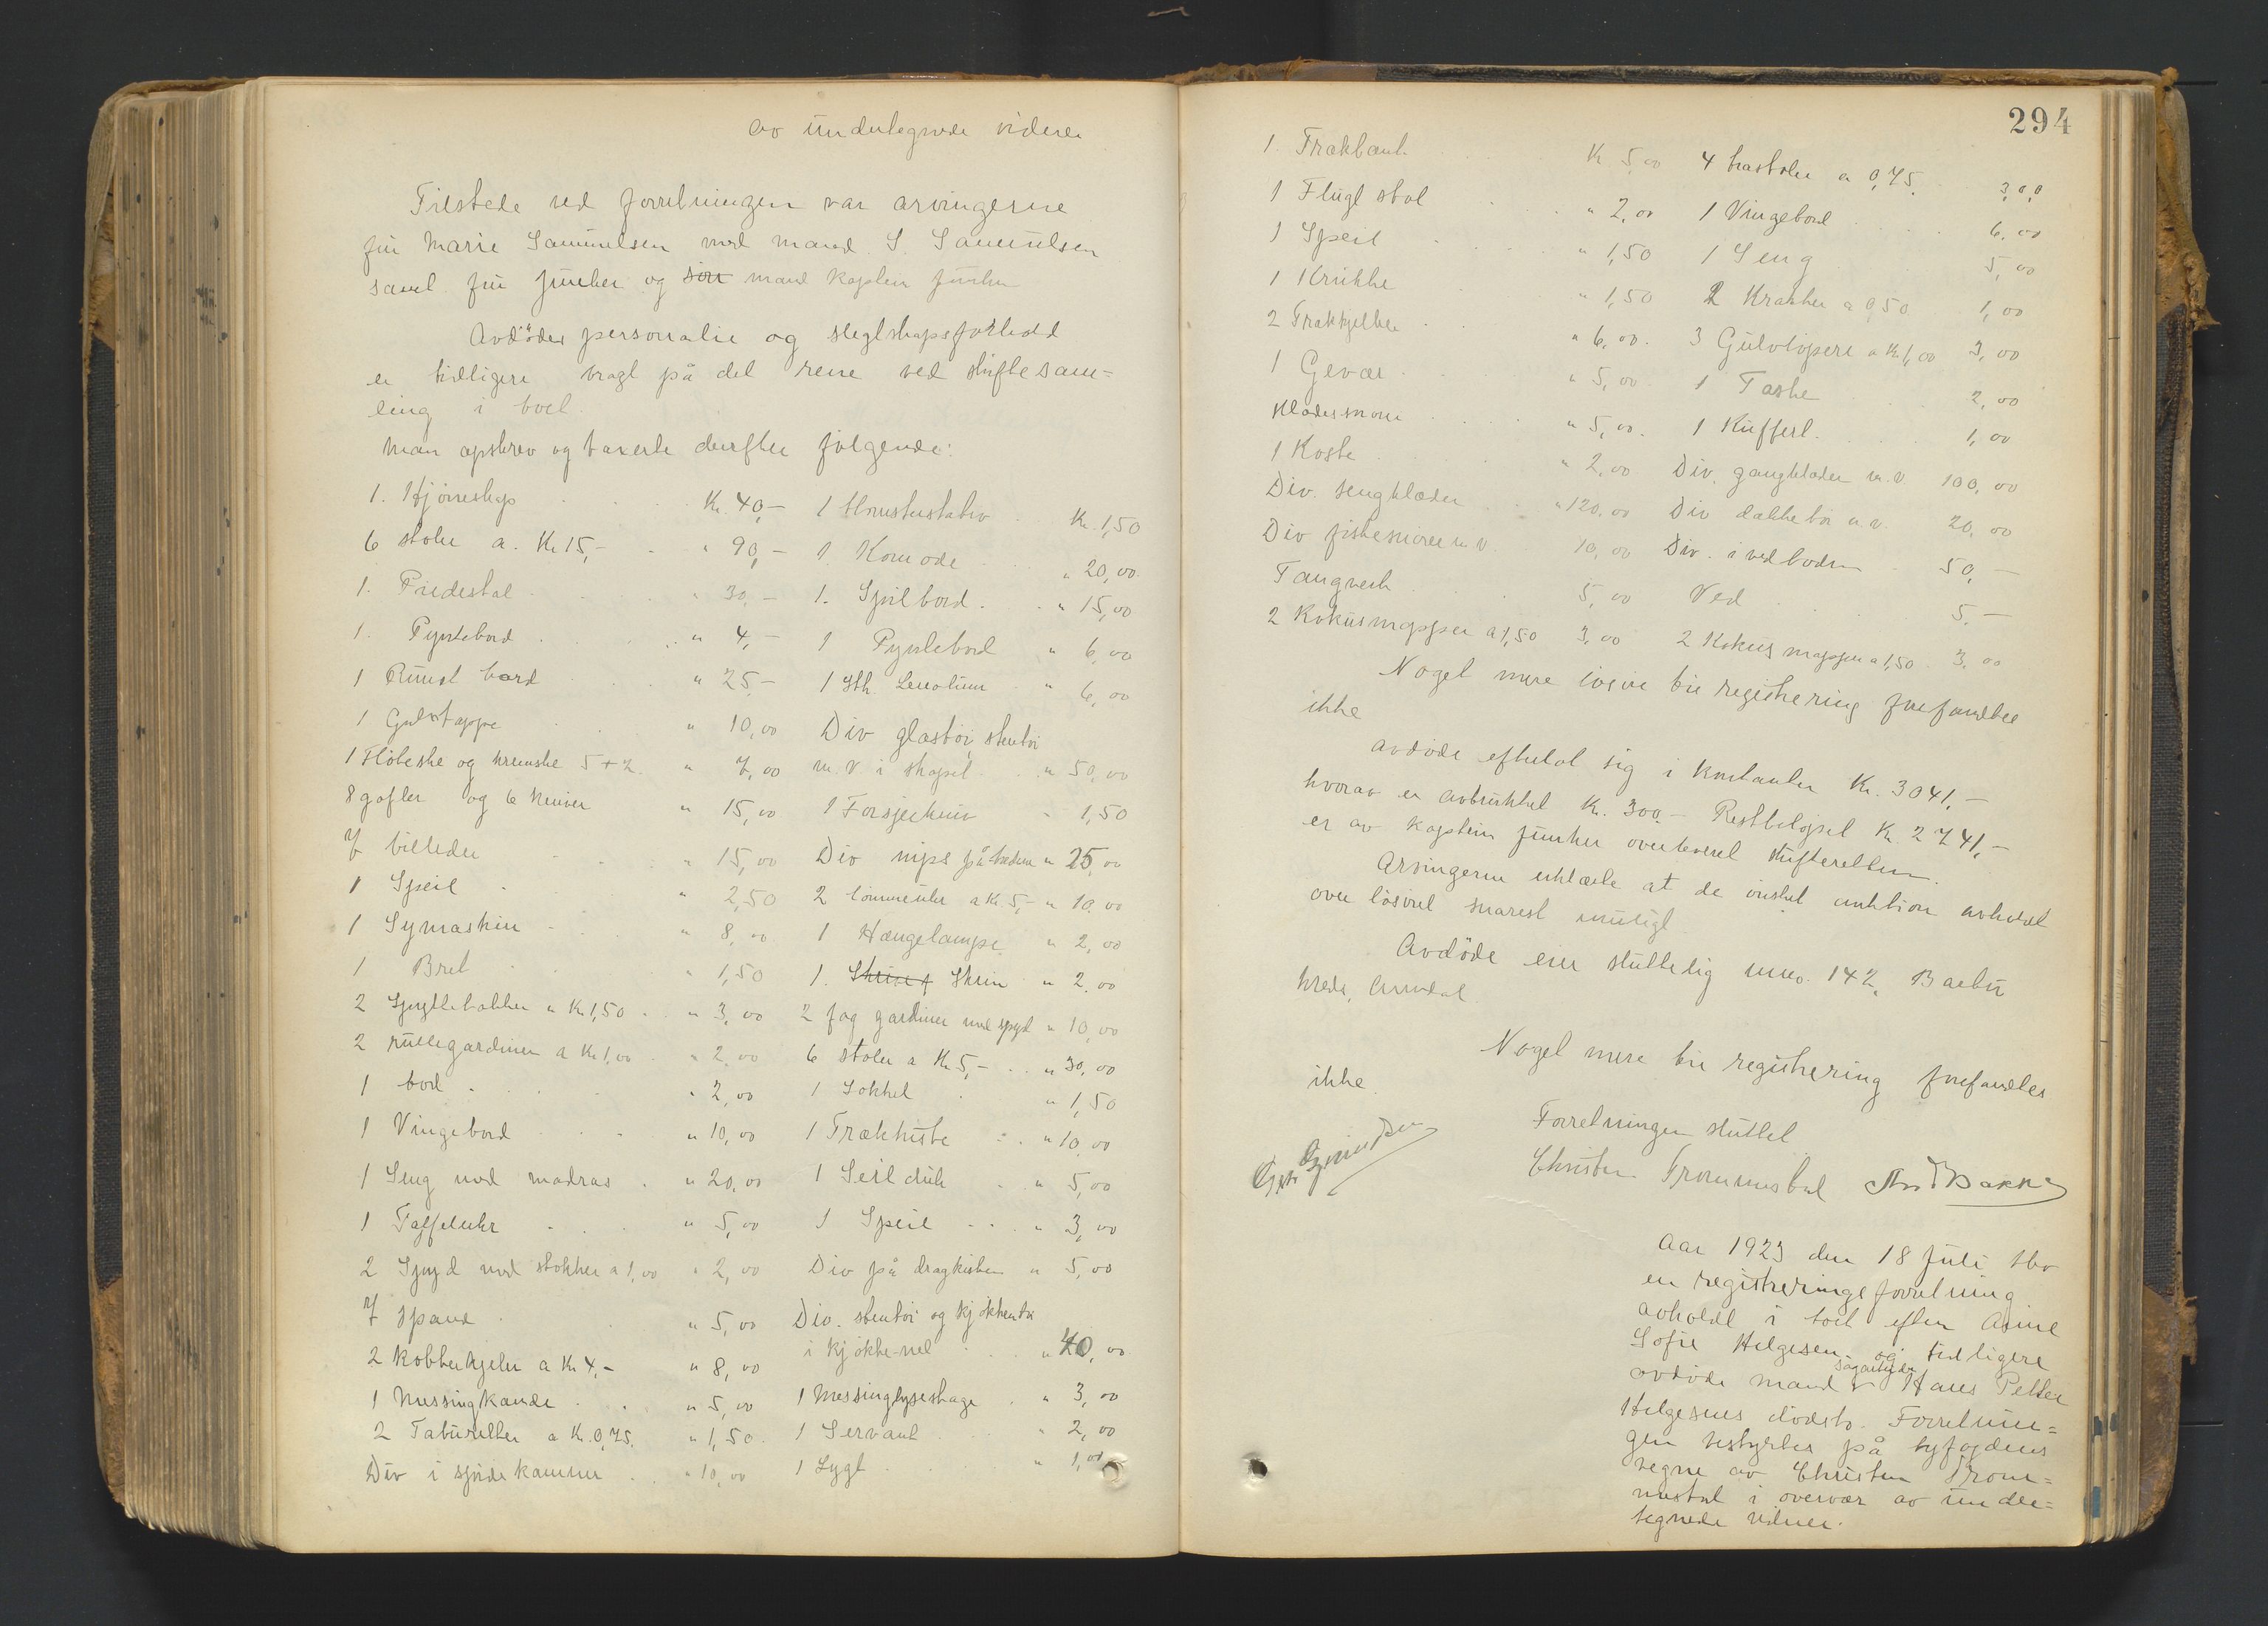 av undertegnede vidner
Tilstede ved forretningen var arvingerne
fru Marie Samuelsen med mand S. Samuelsen
samt fru Juncher og sin mand kaptein Juncher
Avdødes personalie og slegtskapsforhold
er tidligere bragt på det rene ved skiftesam=
ling i boet
Man opskrev og taxerte derefter følgende:
1. Hjørneskap Kr. 40,- 1 Blomsterstativ Kr. 1,50
6 stoler a. Kr 15,- " 90,- 1. Komode " 20,00
1. Piedestal " 30,- 1. Spilbord " 15,00
1. Pyntebord " 4,- 1 Pyntebord " 6,00
1 Rundt bord " 25,- 1 Stk. Linolium " 6,00
1 Gulvtæppe " 10,00 Div glastøi, stentøi
1 Fløteske og kremske 5+2 " 7,00 m.v i skapet " 50,00
8 gafler og 6 kniver " 15,00 1 Forsjærkniv " 1,50
7 billeder " 15,00 Div nips på " 25,00
1 Speil " 2,50 2 a Kr. 5,- " 10,00
1 Symaskin " 8,00 1 Hængelampe " 2,00
1 Bret " 1,50 1. Skrin " 2,00
2 Spyttebakker a Kr 1,50 " 3,00 2 fag gardiner med spyd " 10,00
2 rullegardiner a Kr 1,00 " 2,00 6 stoler a Kr 5,- " 30,00
1 bord " 2,00 1 Sokkel " 1,50
1 Vingebord " 10,00 1 Trækkiste " 10,00
1 Seng med madras " 20,00 1 Seilduk " 5,00
1 Taffeluhr " 5,00 1 Speil " 3,00
2 Spyd med stokker a 1,00 " 2,00 Div på dragkisten " 5,00
7 spand " 5,00 Div. stentøi og kjøkkentøi
i kjøkkenet " 40,00
2 kobberkjeler a Kr 4,- " 8,00
1 Messingkande " 5,00 1 Messinglysestage " 3,00
2 Taburetter a Kr. 0,75. " 1,50 1 Servant " 2,00
Div i spisekammer " 10,00 1 Lygt " 1,00
294
1. Trækbænk Kr 5,00 4 træstoler a 0,75. 3,00
1 Flugt stol " 2,00 1 Vingebord 6,00
1 Speil " 1,50 1 Seng 5,00
1 Krukke " 1,50 2 Krakker a 0,50 1,00
2 " 6,00. 3 Gulvløpere a Kr 1,00 3,00
1 Gevær " 5,00 1 Taske 2,00
Klædessnore " 5,00. 1 Kuffert 1,00
1 Koste " 2,00 Div. gangklæder m.v 100,00
Div. sengklæder " 120,00 Div dækketøi m.v. 20,00
Div fiskesnører m.v. 10,00 Div. i vedboden 50,-
Taugverk 5,00 Ved 5,-
2 Kokusmapper a 1,50 3,00 2 Kokus mapper a 1,50 3,00
Noget mere løsøre til registrering forefandtes
ikke
Avdøde efterlot sig i kontanter Kr. 3041,-
hvorav er avbruktet Kr. 300.- Restbeløpet Kr 2741,-
er av kaptein Juncher overleveret skifteretten.
Arvingerne erklærte at de ønsket auktion avholdt
over løsøret snarest muligt
Avdøde eier skattelig mno. 142, Barbu
kreds, Arendal.
Noget mere til registrering forefandtes
ikke.
Forretningen sluttet
Christen Tromnestad
Aar 1923 den 18 Juli blev
en registreringsforretning
avholdt i boet efter Anne
Sofie Helgesen og tidligere
avdøde mand sagarbeider Hans Petter
Helgesens dødsbo. Forretnin=
gen bestyrtes på byfogdens
vegne av Christen Trom=
nestad i overvær av under=
tegnede vidner.